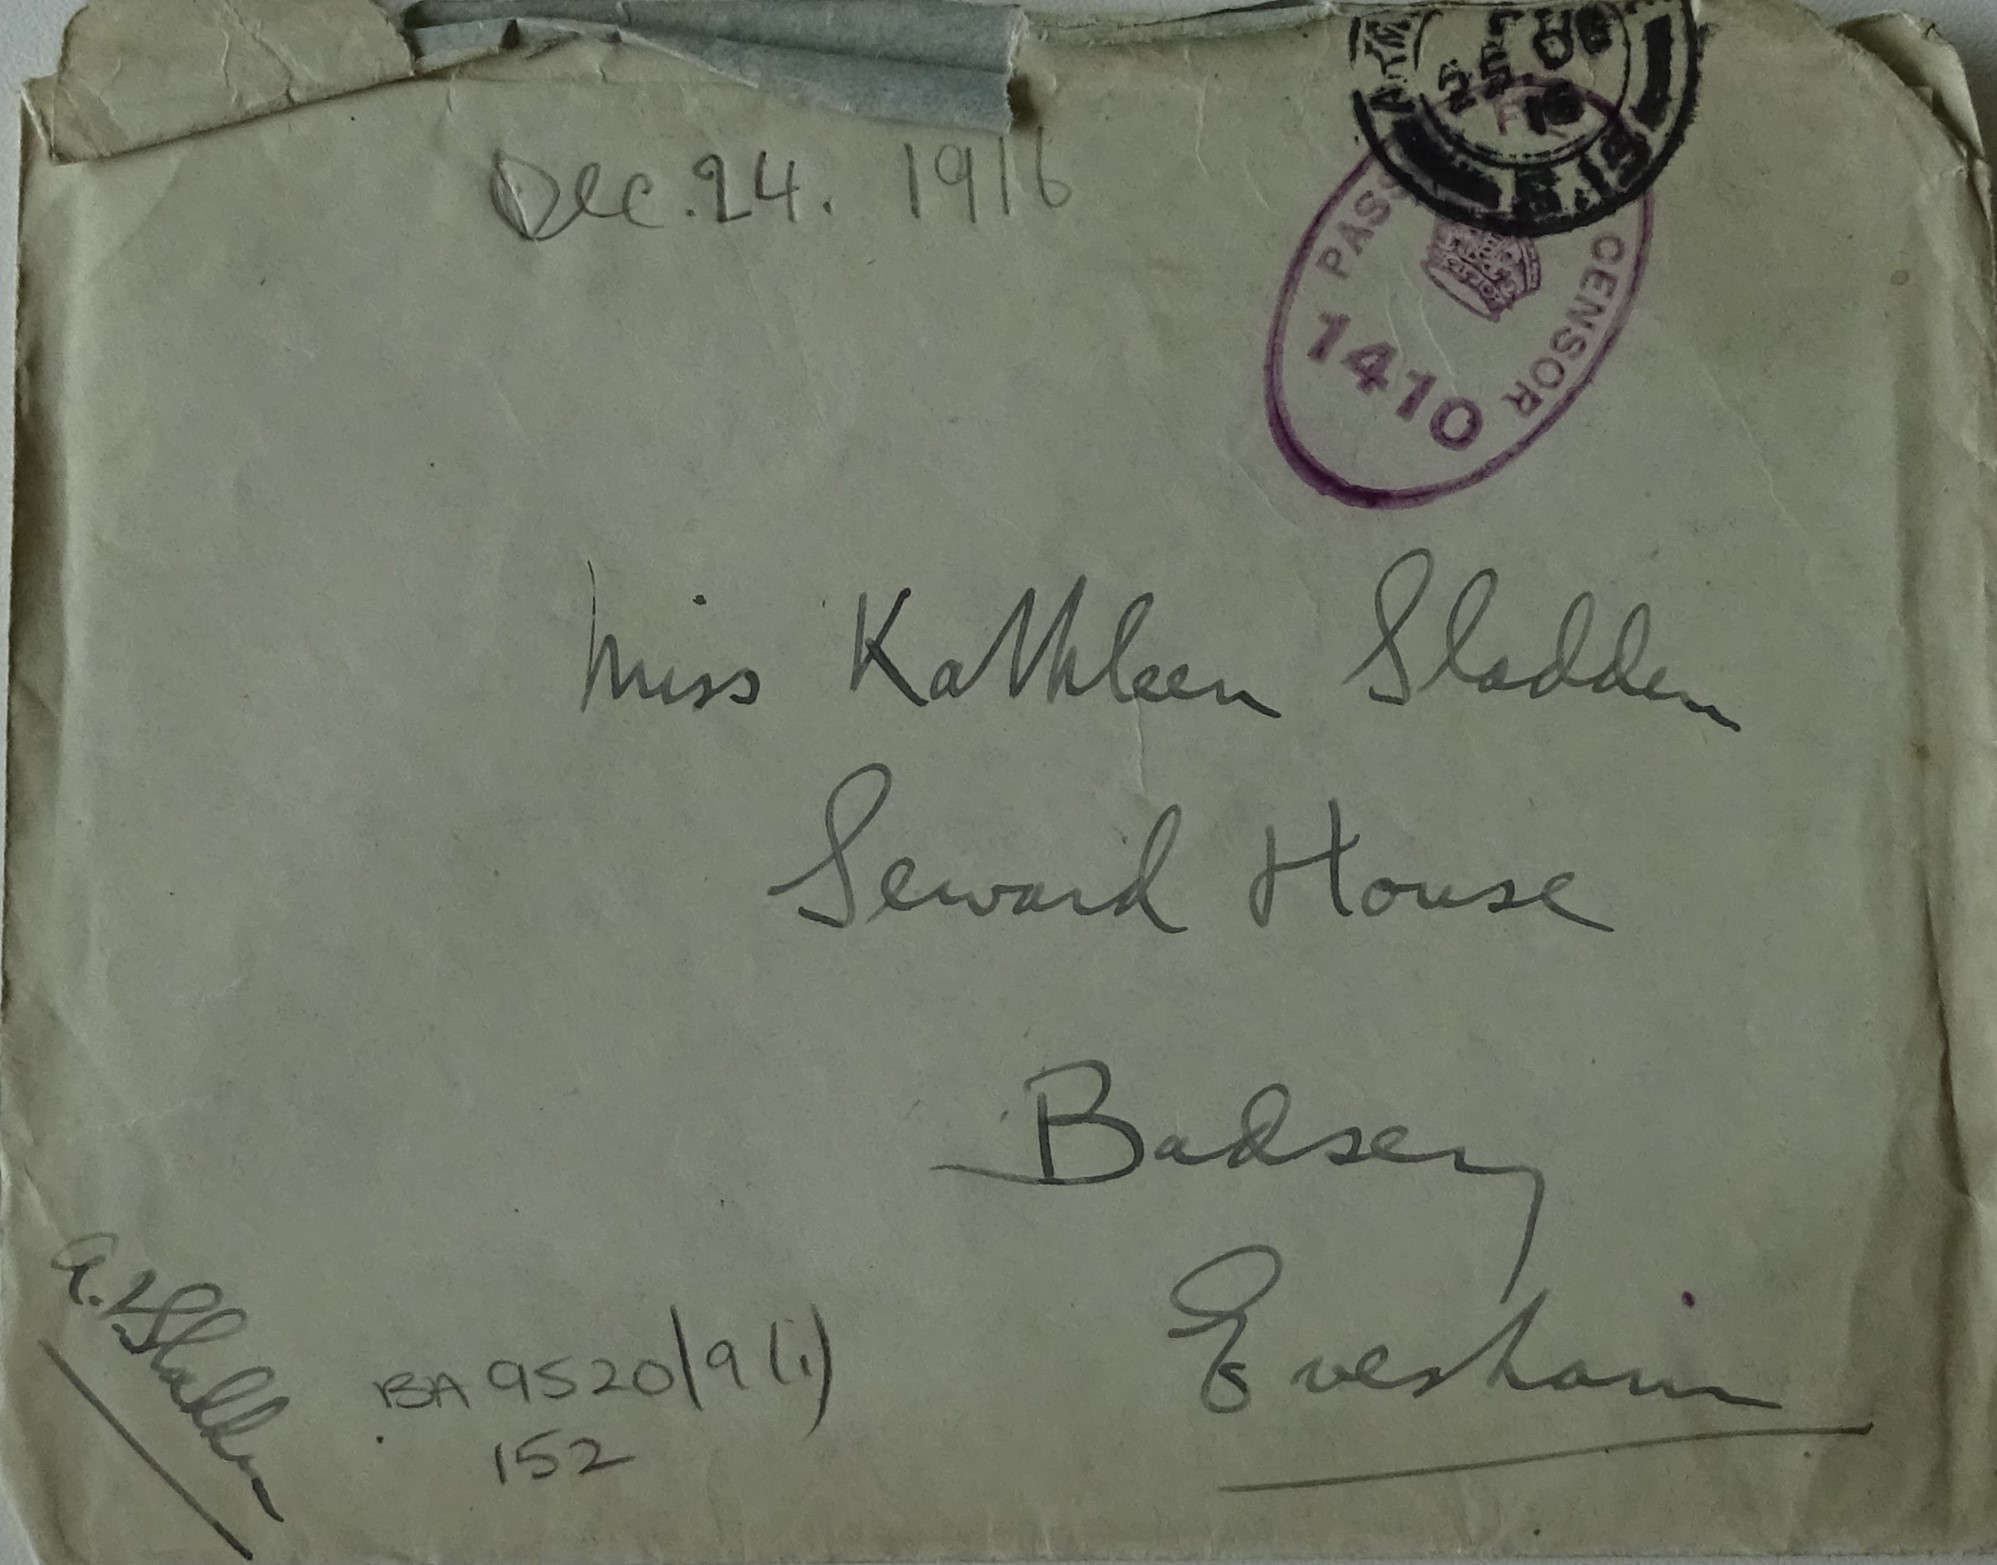 25 DE
16
Dec. 24. 1916
PASS CENSOR
1410
Miss Kathleen Sladden
Seward House
Badsey
Evesham
A.L Sladden
BA 9520/9 (i)
152